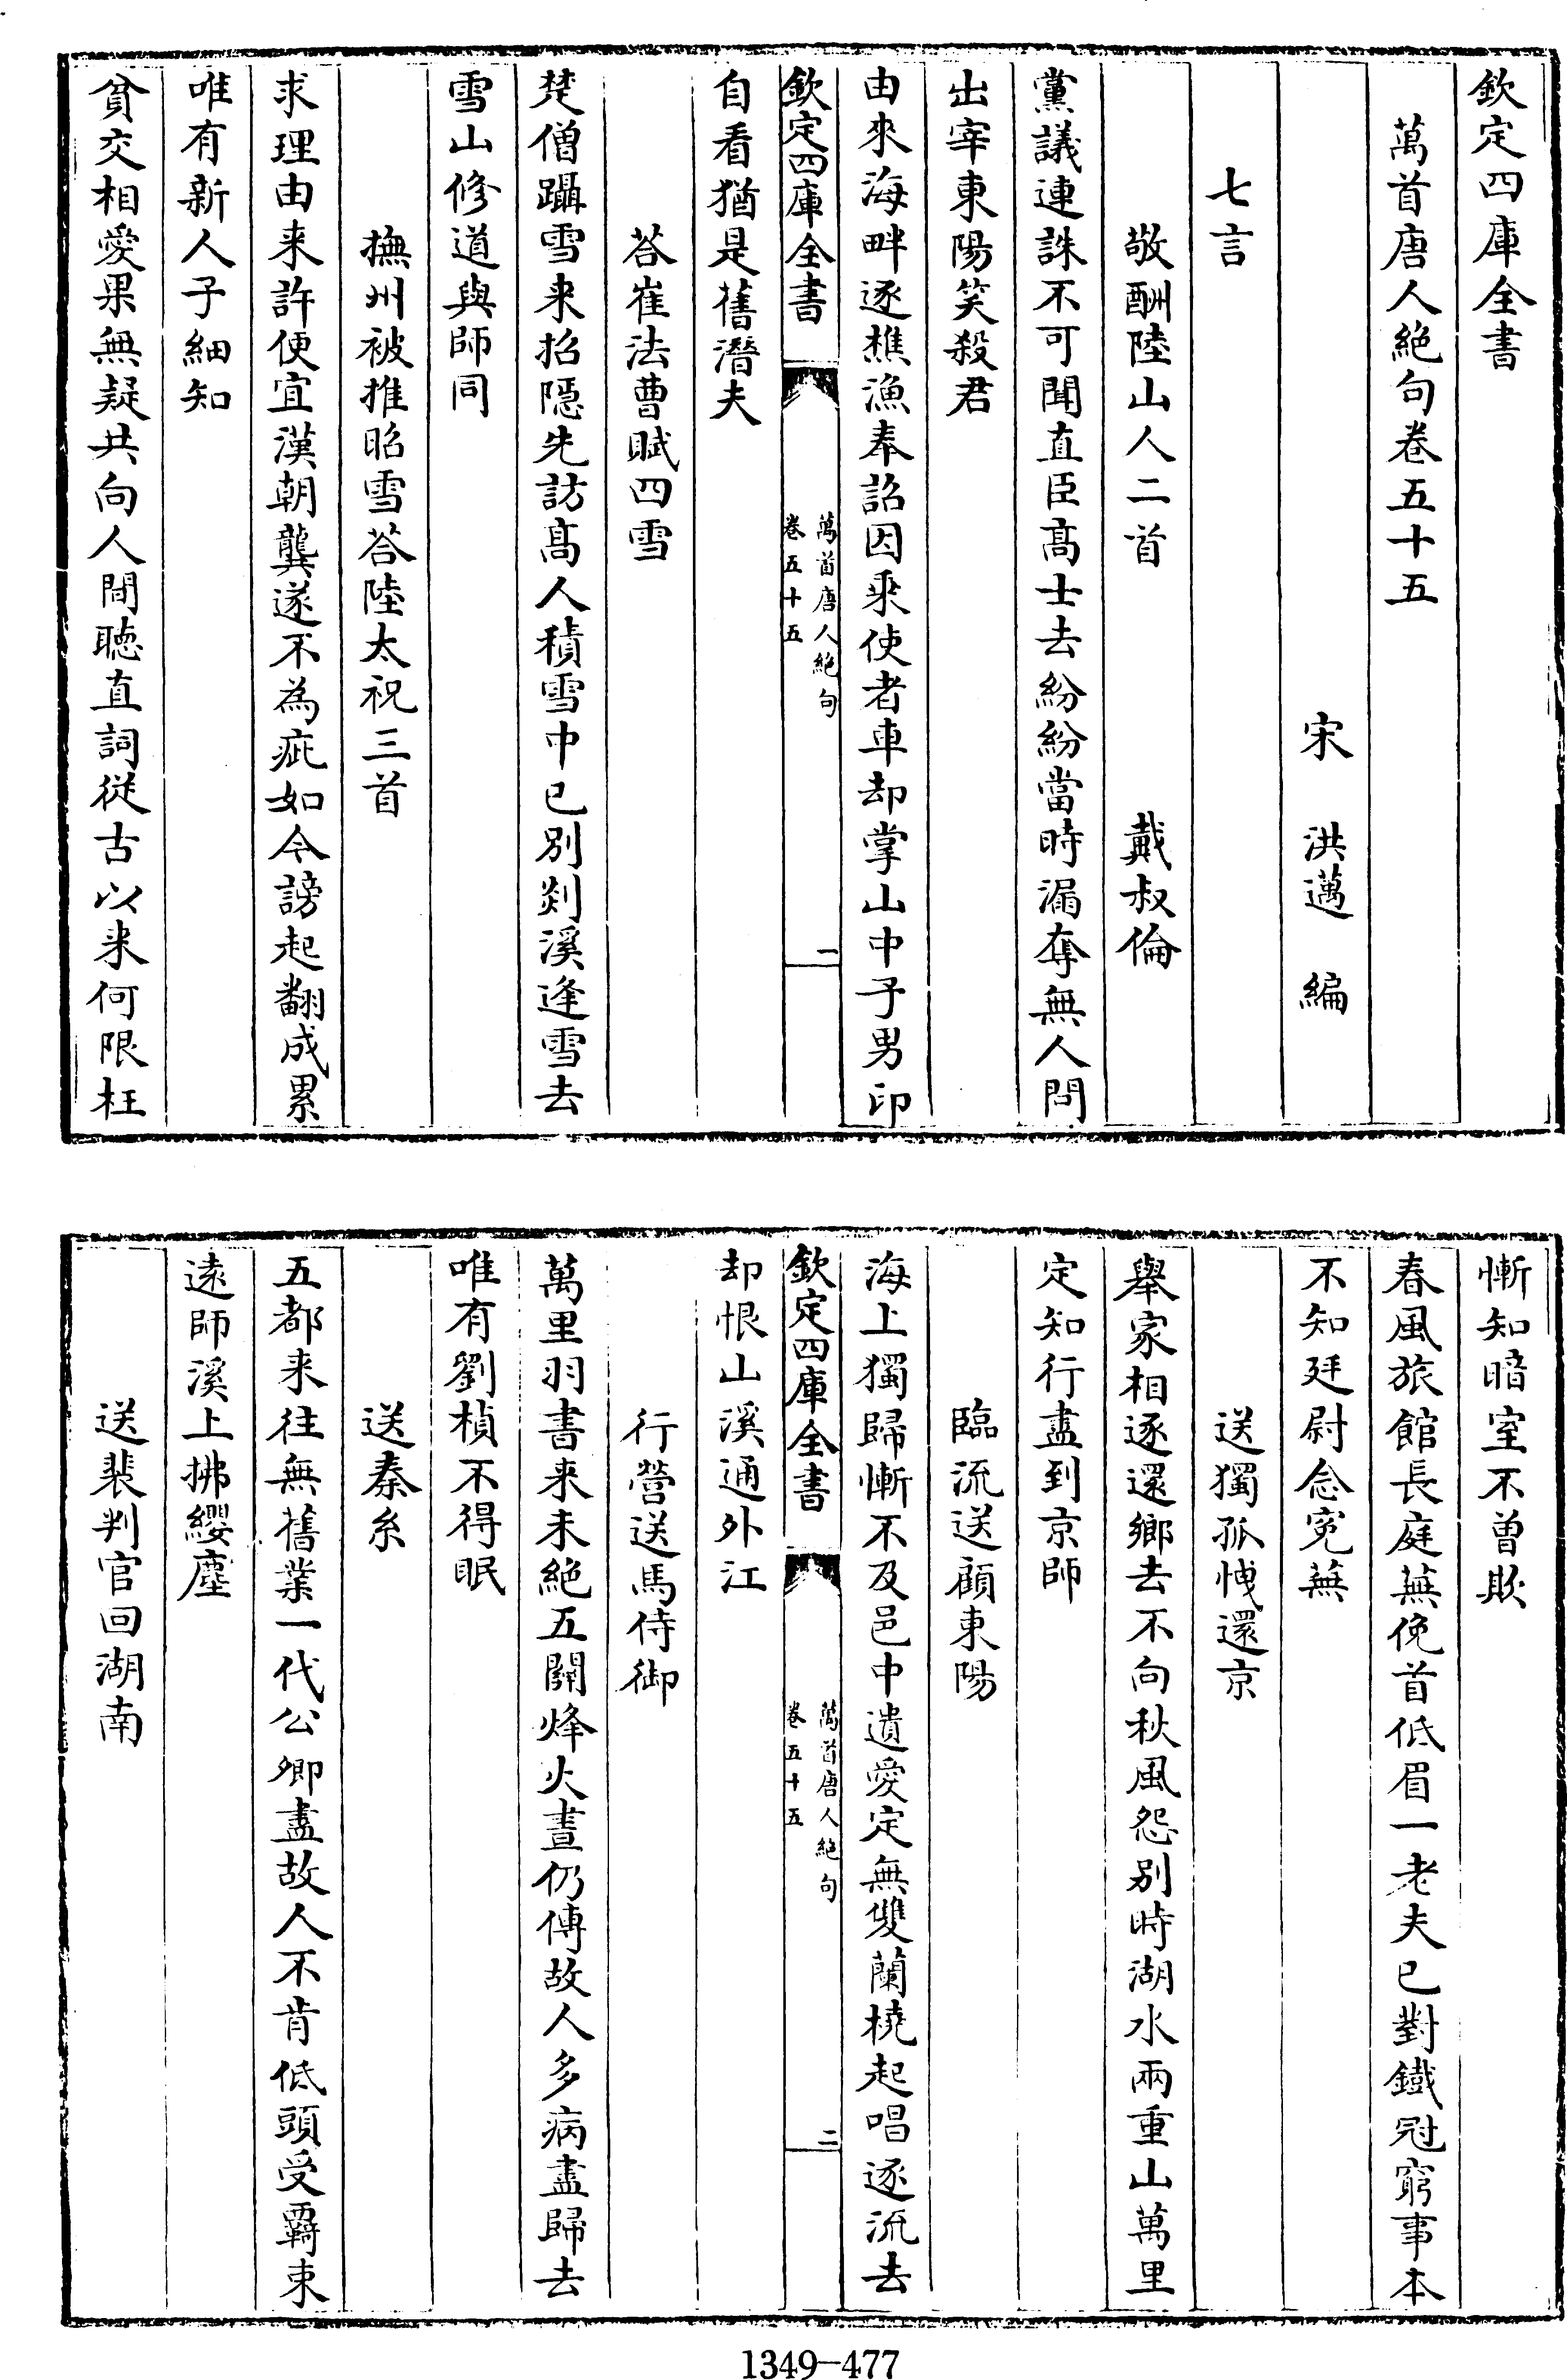 欽定四庫全書
萬首唐人絶句卷五十五
宋 洪邁 編
七言
敬酬陸山人二首 戴叔倫
黨議連誅不可聞直臣髙士去紛紛當時漏奪無人問
出宰東陽笑殺君
由來海畔逐樵漁奉詔因乗使者車却掌山中子男印
欽定四庫全書
萬首唐人絶句
卷五十五
一
自看猶是舊潛夫
荅崔法曹賦四雪
楚僧躡雪来招隠先訪髙人積雪中已別剡溪逢雪去
雪山修道與師同
撫州被推昭雪荅陸太祝三首
求理由来許便宜漢朝龔遂不為疵如今謗起翻成累
唯有新人子細知
貧交相愛果無疑共向人間聴直詞從古以来何限枉
慚知暗室不曾欺
春風旅館長庭蕪俛首低眉一老夫已對鐵冠窮事本
不知廷尉念寃無
送獨孤愐還京
舉家相逐還鄉去不向秋風怨別時湖水兩重山萬里
定知行盡到京師
臨流送顧東陽
海上獨歸慚不及邑中遺愛定無雙蘭橈起唱逐流去
欽定四庫全書
萬首唐人絶句
卷五十五
二
却恨山溪通外江
行營送馬侍御
萬里羽書来未絶五關烽火晝仍傳故人多病盡歸去
唯有劉楨不得眠
送秦系
五都来往無舊業一代公卿盡故人不肯低頭受羇束
遠師溪上拂纓塵
送裴判官回湖南
1349-477